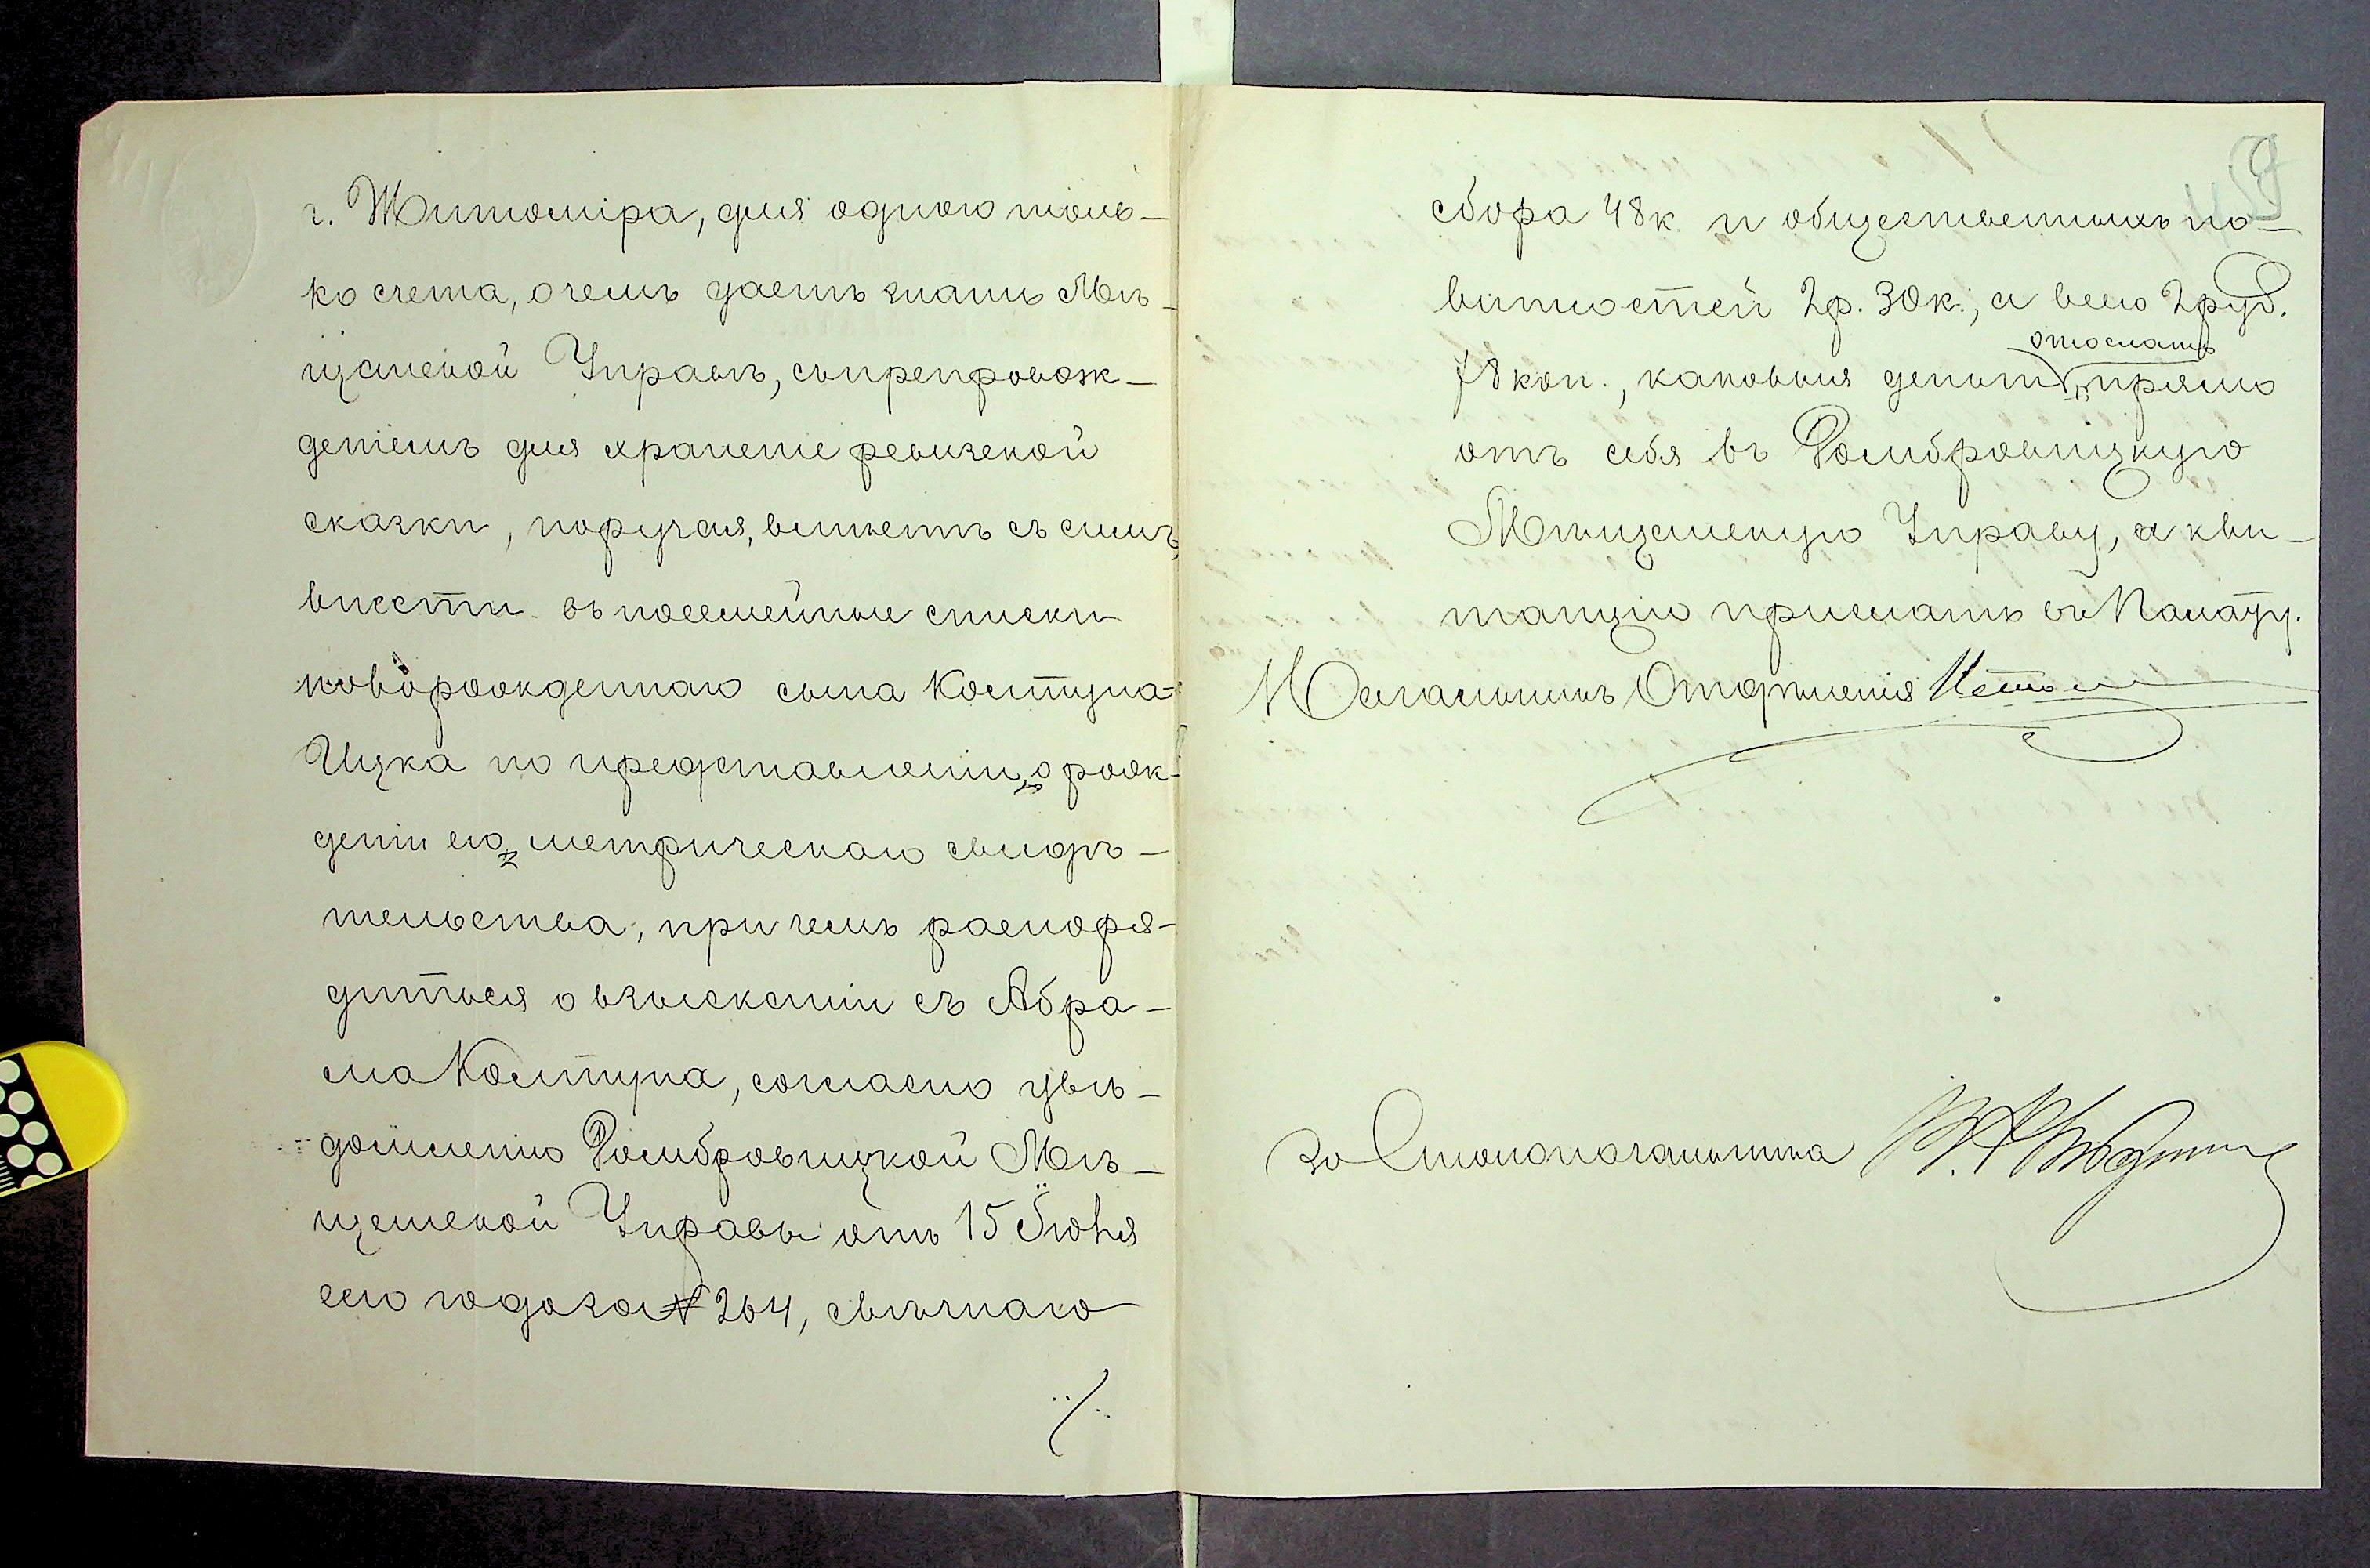 г. Житоміра, для одного толь-
ко счета, о чемъ даетъ знать Мѣ-
щанской Управѣ, съ препровож-
деніемъ для храненіе ревизской
сказки, поручая, вмѣстѣ съ симъ,
внести въ посемейные списки
новорожденнаго сына Колтуна
Ицка по представленіи, о рож-
деніи его, метрическаго свидѣ-
тельства, при чемъ распоря-
диться о взысканіи съ Абра-
ма Колтуна, согласно увѣ-
домленію Домбровицкой Мѣ-
щанской Управы отъ 15 Іюня
сего года за № 264, свѣчнаго
сбора 48 к. и общественныхъ по-
винностей 2 р. 30 к., а всего 2 руб.
отослать
78 коп., каковыя деньги прямо
отъ себя въ Домбровицкую
Мѣщанскую Управу, а кви-
танцію прислать въ Палату.
Начальникъ Отдѣленія
За Столоначальника